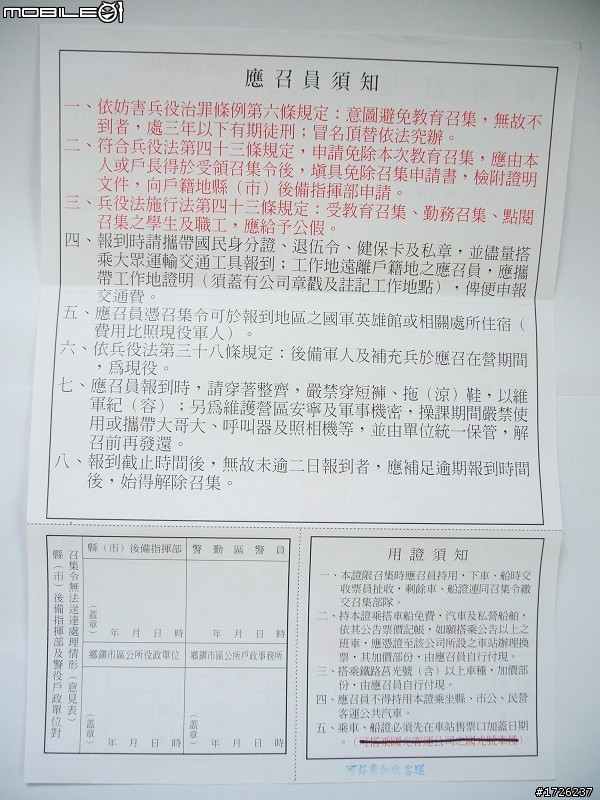 MOBILE01
應召員須知
一、依妨害兵役治罪條例第六條規定：意圖避免教育召集，無故不
到者，處三年以下有期徒刑；冒名頂替依法究辦。
二、符合兵役法第四十三條規定，申請免除本次教育召集，應由本
人或戶長得於受領召集令後，填具免除召集申請書，檢附證明
文件，向戶籍地縣（市）後備指揮部申請。
三、兵役法施行法第四十三條規定：受教育召集、勤務召集、點閱
召集之學生及職工，應給予公假。
四、報到時請攜帶國民身分證、退伍令、健保卡及私章，並儘量搭
乘大眾運輸交通工具報到；工作地遠離戶籍地之應召員，應攜
帶工作地證明（須蓋有公司章戳及註記工作地點），俾便申報
交通費。
五、應召員憑召集令可於報到地區之國軍英雄館或相關處所住宿（
費用比照現役軍人）。
六、依兵役法第三十八條規定：後備軍人及補充兵於應召在營期間
，為現役。
七、應召員報到時，請穿著整齊，嚴禁穿短褲、拖（涼）鞋，以維
軍紀（容）；另為維護營區安寧及軍事機密，操課期間嚴禁使
用或攜帶大哥大、呼叫器及照相機等，並由單位統一保管，解
召前再發還。
八、報到截止時間後，無故未逾二日報到者，應補足逾期報到時間
後，始得解除召集。
召集令無法送達處理情形（意見表）
縣（市）後備指揮部及警役戶政單位對
縣（市）後備指揮部
警勤區警員
（蓋章）
年 月 日 時
年 月 日 時
鄉鎮市區公所役政單位
鄉鎮市區公所戶政事務所
（蓋章）
年 月 日 時
（蓋章）
年 月 日 時
用證須知
一、本證限召集時應召員持用，下車、船時交
收票員扯收，剩餘車、船證連同召集令繳
交召集部隊。
二、持本證乘搭車船免費，汽車及私營船舶，
依其公告票價記帳，如願搭乘公告以上之
班車，應憑證至該公司所設之車站辦理換
票，其加價部份，由應召員自行付現。
三、搭乘鐵路莒光號（含）以上車種，加價部
份，由應召員自行付現。
四、應召員不得持用本證乘坐縣、市公、民營
客運公共汽車。
五、乘車、船證必須先在車站售票口加蓋日期
。（可搭乘國光客運公司之國光號車種）
可搭乘和欣客運
#1726237